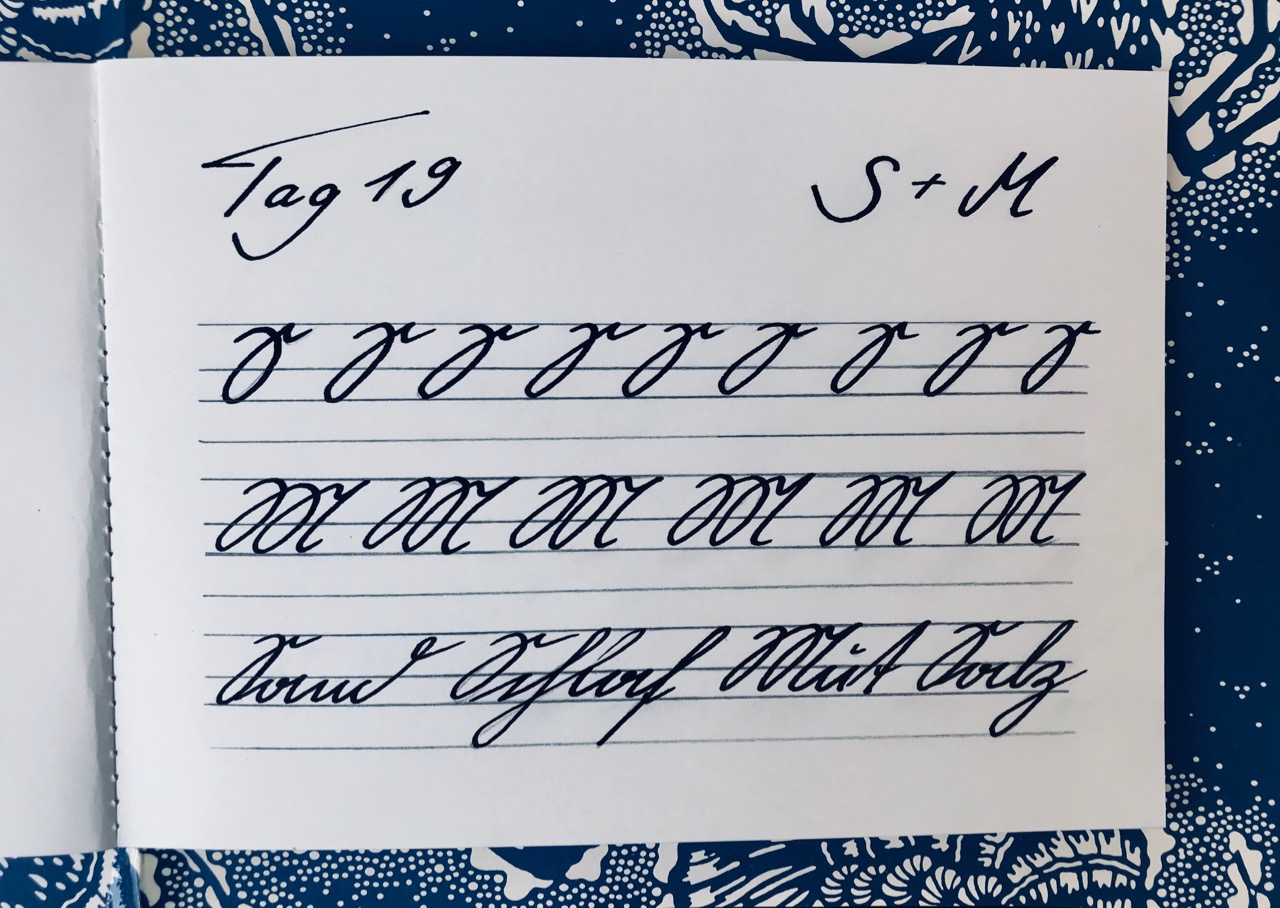 Tag 19 S + M
S S S S S S S S S
M M M M M M
Sand Schlaf Mut Salz